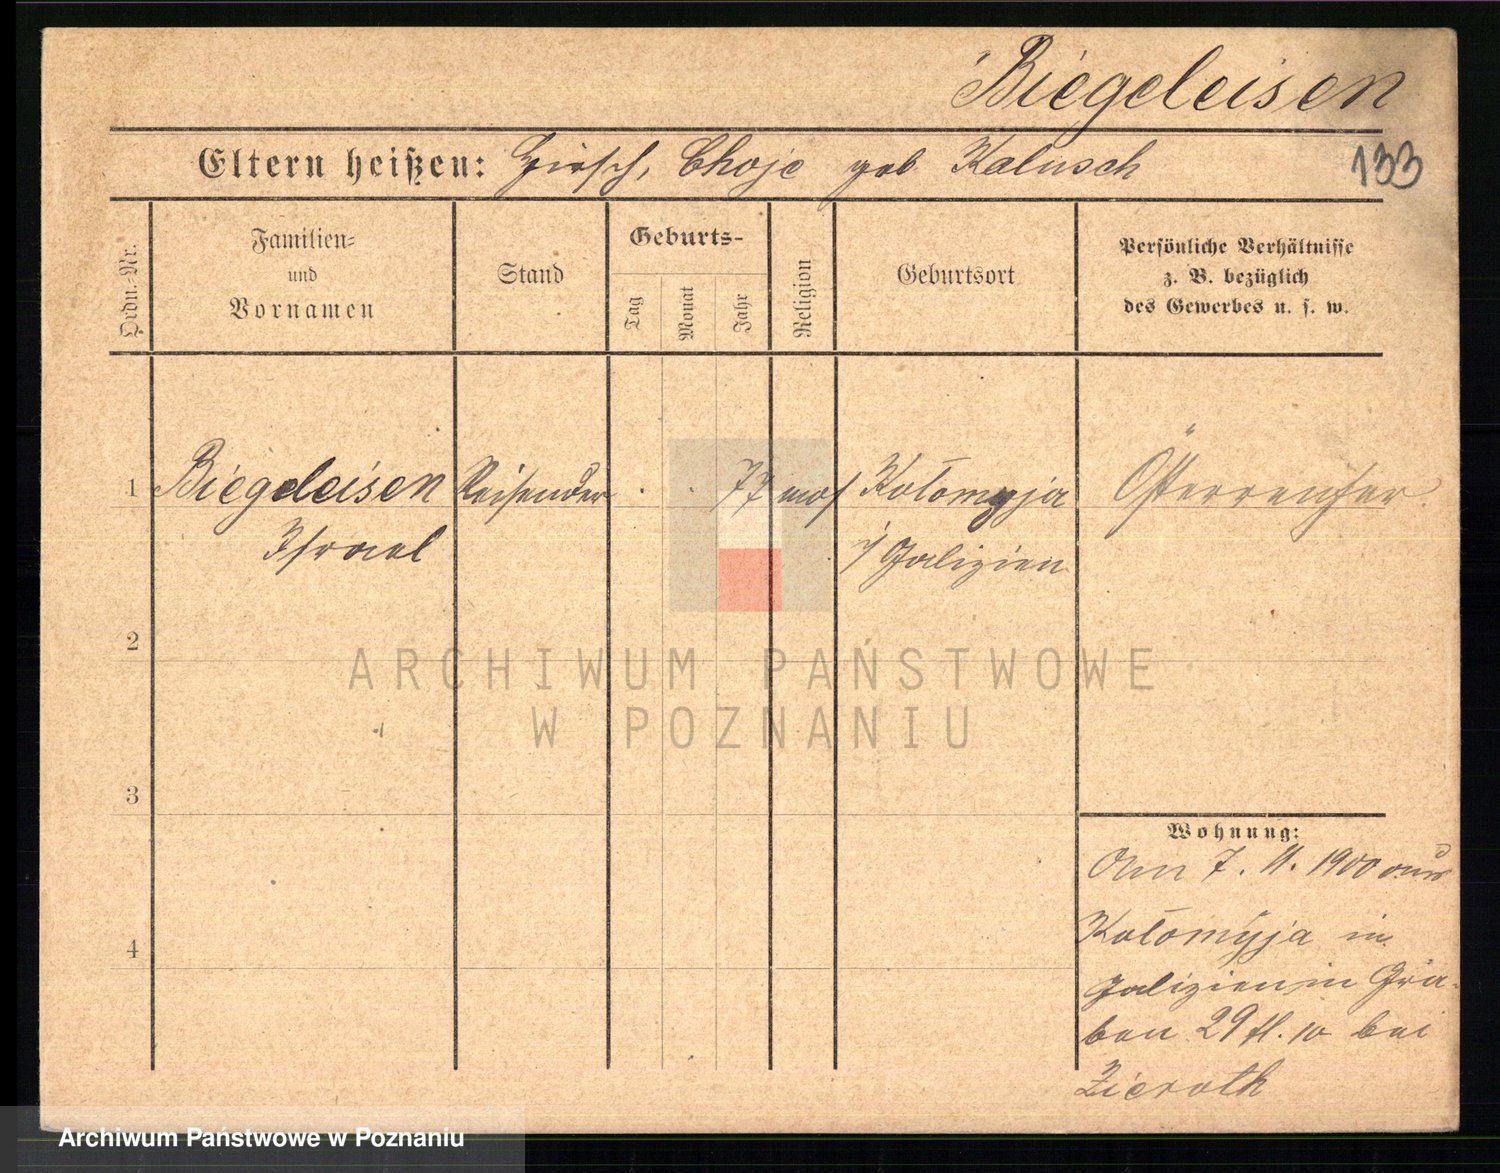 Biegeleisen
133
Eltern heißen: Hirsch, Choje geb Kalusch
Ordn.-Nr.
Familien-
und
Vornamen
Stand
Geburts-
Tag
Monat
Jahr
Religion
Geburtsort
Persönliche Verhältnisse
z. B. bezüglich
des Gewerbes u. s. w.
1 Biegeleisen Reisender 77 mos Kołomyja Österreicher
Israel i/ Galizien
2
3
4
ARCHIWUM PAŃSTWOWE
W POZNANIU
Wohnung:
Am 7. 11. 1900 aus
Kołomyja in
Galizien in Gra-
ben 29 bei
Zieroth
Archiwum Państwowe w Poznaniu